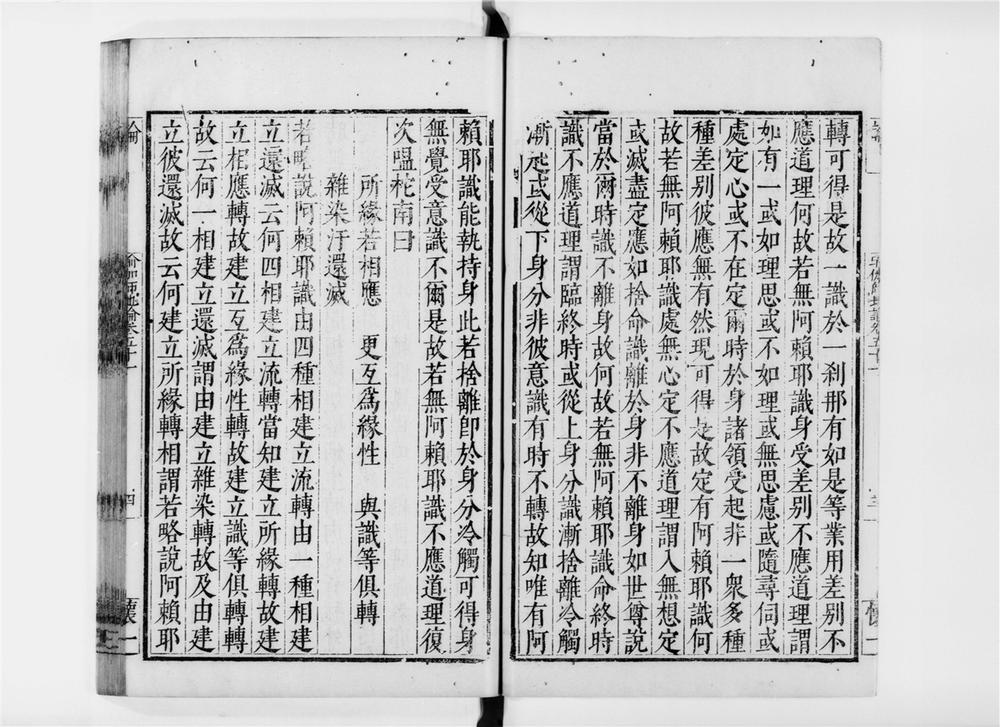 轉可得是故一識於一刹那有如是等業用差别不
應道理何故若無阿賴耶識身受差别不應道理謂
如有一或如理思或不如理或無思慮或隨尋伺或
處定心或不在定爾時於身諸領受起非一衆多種
種差别彼應無有然現可得是故定有阿賴耶識何
故若無阿賴耶識處無心定不應道理謂入無想定
或滅盡定應如捨命識離於身非不離身如世尊說
當於爾時識不離身故何故若無阿賴耶識命終時
識不應道理謂臨終時或從上身分識漸捨離冷觸
漸起或從下身分非彼意識有時不轉故知唯有阿
賴耶識能執持身此若捨離卽於身分冷觸可得身
無覺受意識不爾是故若無阿賴耶識不應道理復
次嗢柁南曰
所緣若相應　更互爲緣性　與識等俱轉
雜染汙還滅
若略說阿賴耶識由四種相建立流轉由一種相建
立還滅云何四相建立流轉當知建立所緣轉故建
立相應轉故建立互爲緣性轉故建立識等俱轉轉
故云何一相建立還滅謂由建立雜染轉故及由建
立彼還滅故云何建立所緣轉相謂若略說阿賴耶
四
懷一